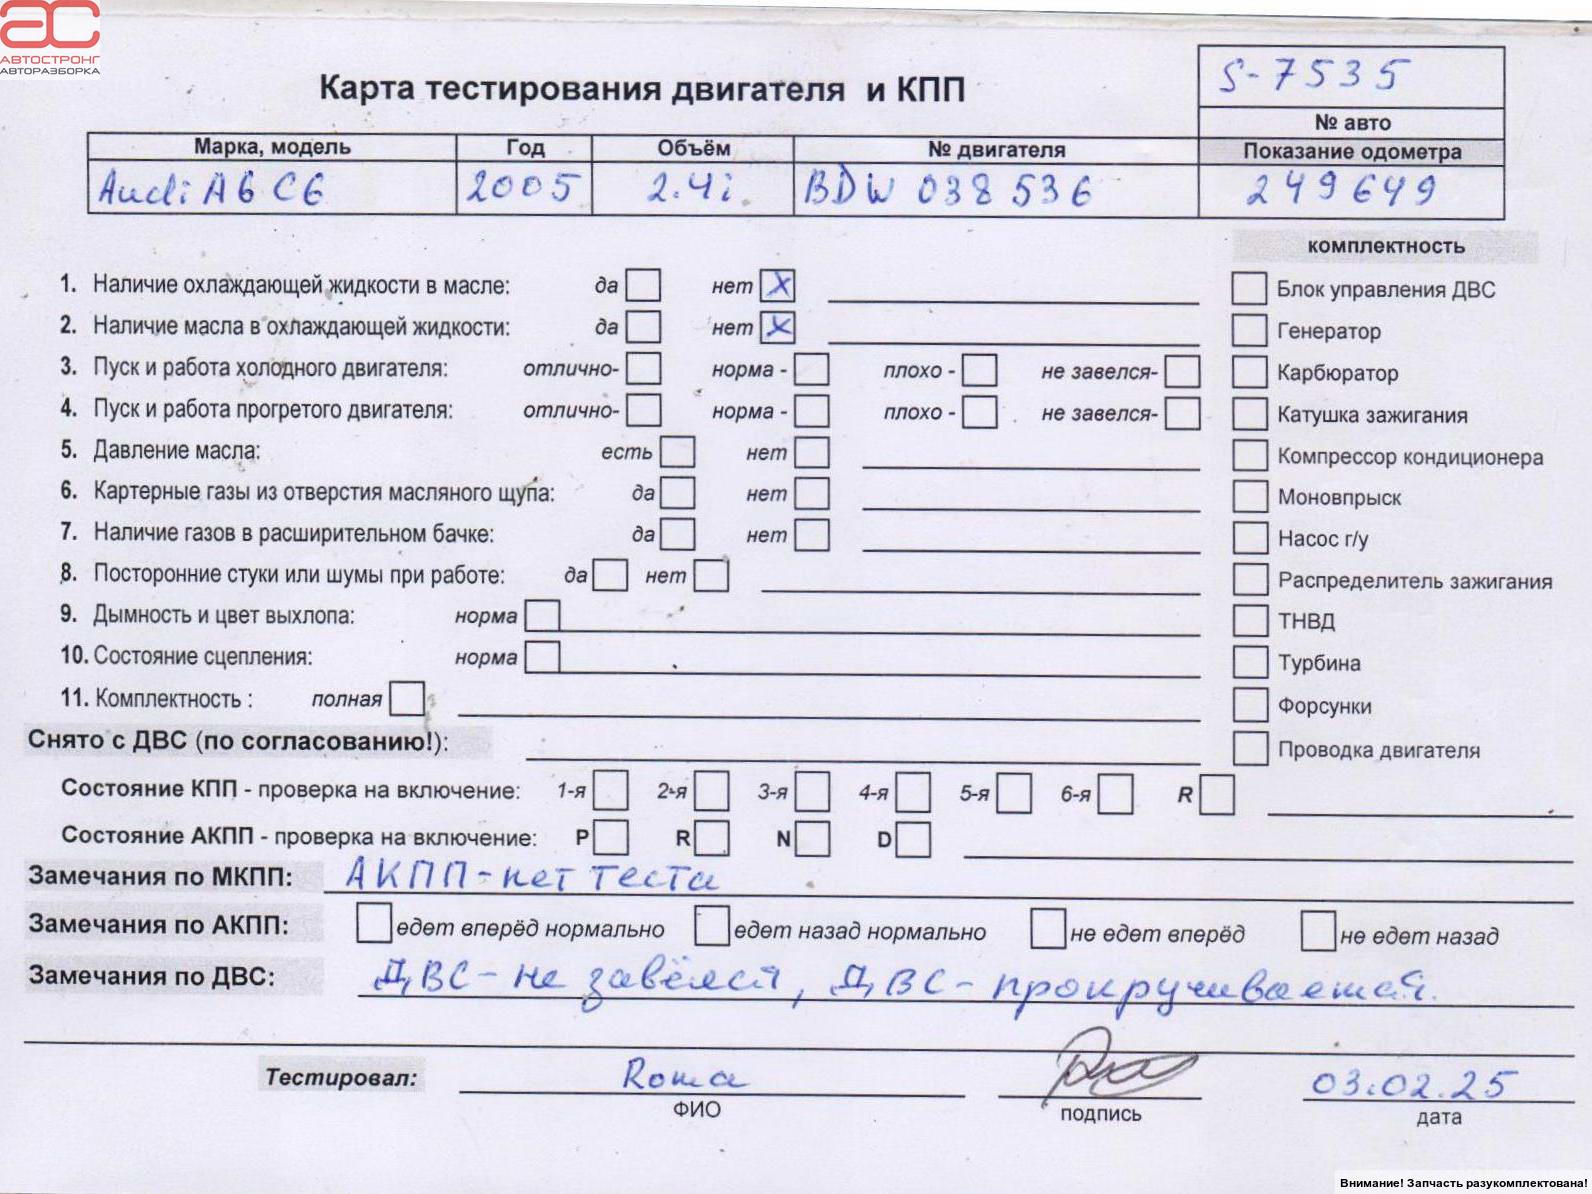 АВТОСТРОНГ
АВТОРАЗБОРКА
Карта тестирования двигателя и КПП
S-7535
№ авто
Марка, модель Год Объём № двигателя Показание одометра
Audi A6 C6 2005 2.4i BDW 038536 249649
комплектность
1. Наличие охлаждающей жидкости в масле: да нет X Блок управления ДВС
2. Наличие масла в охлаждающей жидкости: да нет X Генератор
3. Пуск и работа холодного двигателя: отлично- норма - плохо - не завелся- Карбюратор
4. Пуск и работа прогретого двигателя: отлично- норма - плохо - не завелся- Катушка зажигания
5. Давление масла: есть нет Компрессор кондиционера
6. Картерные газы из отверстия масляного щупа: да нет Моновпрыск
7. Наличие газов в расширительном бачке: да нет Насос г/у
8. Посторонние стуки или шумы при работе: да нет Распределитель зажигания
9. Дымность и цвет выхлопа: норма ТНВД
10. Состояние сцепления: норма Турбина
11. Комплектность : полная Форсунки
Снято с ДВС (по согласованию!): Проводка двигателя
Состояние КПП - проверка на включение: 1-я 2-я 3-я 4-я 5-я 6-я R
Состояние АКПП - проверка на включение: P R N D
Замечания по МКПП: АКПП-нет теста
Замечания по АКПП: едет вперёд нормально едет назад нормально не едет вперёд не едет назад
Замечания по ДВС: ДВС-не завёлся, ДВС-прокручивается.
Тестировал: Roma 03.02.25
ФИО подпись дата
Внимание! Запчасть разукомплектована!